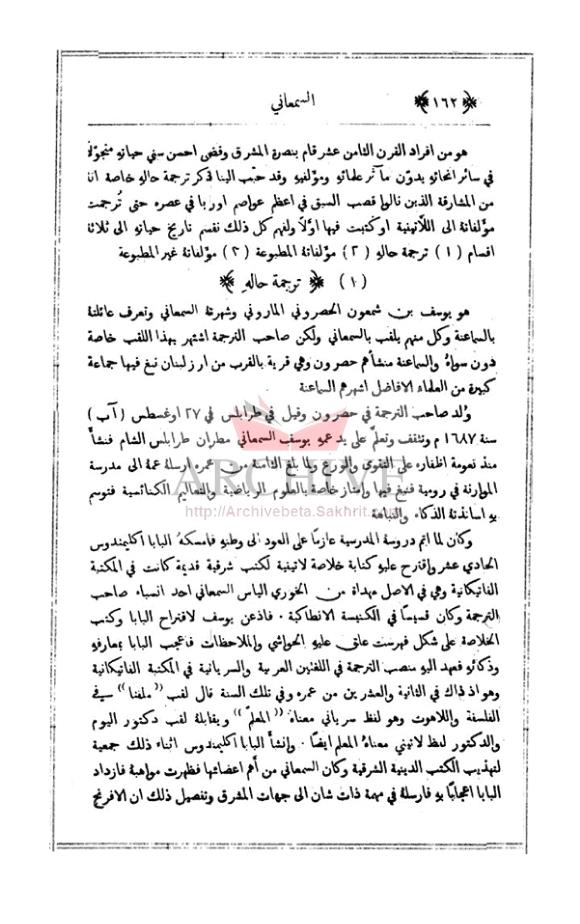 ﴿ ١٦٢ ﴾ السمعاني
هو من افراد القرن الثامن عشر قام بنصرة المشرق وقضى احسن سني حياته متجولاً
في سائر انحائه يدوّن مآثر علمائه ومؤلفيه وقد حبّب الينا ذكر ترجمة حاله خاصة انه
من المشارقة الذين نالوا قصب السبق في اعظم عواصم اوربا في عصره حتى تُرجمت
مؤلفاته الى اللاتينية او كتبت فيها اولاً ولفهم كل ذلك نقسم تاريخ حياته الى ثلاثة
اقسام (١) ترجمة حاله (٢) مؤلفاته المطبوعة (٣) مؤلفاته غير المطبوعة
(١) ﴿ ترجمة حاله ﴾
هو يوسف بن شمعون الحصروني الماروني وشهرته السمعاني وتعرف عائلته
بالسماعنة وكل منهم يلقب بالسمعاني ولكن صاحب الترجمة اشتهر بهذا اللقب خاصة
دون سواهُ والسماعنة منشأهم حصرون وهي قرية بالقرب من ارز لبنان نبغ فيها جماعة
كبيرة من العلماء الافاضل اشهرهم السماعنة
وُلد صاحب الترجمة في حصرون وقيل في طرابلس في ٢٧ اوغسطس (آب)
سنة ١٦٨٧ م وتثقف وتعلّم على يد عمهِ يوسف السمعاني مطران طرابلس الشام فنشأ
منذ نعومة اظفاره على التقوى والورع ولما بلغ الثامنة من عمره ارسلهُ عمهُ الى مدرسة
الموارنة في رومية فنبغ فيها وامتاز خاصة بالعلوم الرياضية والتعاليم الكنائسية فتوسم
بهِ اساتذتهُ الذكاء والنباهة
ARCHIVE
http://Archivebeta.Sakhrit.com
وكان لما اتم دروسهُ المدرسية عازمًا على العود الى وطنهِ فامسكهُ البابا اكليمندوس
الحادي عشر واقترح عليهِ كتابة خلاصة لاتينية لكتب شرقية قديمة كانت في المكتبة
الفاتيكانية وهي في الاصل مهداة من الخوري الياس السمعاني احد انسباء صاحب
الترجمة وكان قسيسًا في الكنيسة الانطاكية · فاذعن يوسف لاقتراح البابا وكتب
الخلاصة على شكل فهرست علق عليهِ الحواشي والملاحظات فاعجب البابا بمعارفهِ
وذكائهِ فعهد اليهِ منصب الترجمة في اللغتين العربية والسريانية في المكتبة الفاتيكانية
وهو اذ ذاك في الثانية والعشرين من عمره وفي تلك السنة نال لقب "ملفنا" في
الفلسفة واللاهوت وهو لفظ سرياني معناهُ "المعلم" ويقابلهُ لقب دكتور اليوم
والدكتور لفظ لاتيني معناهُ المعلم ايضًا · وانشأ البابا اكليمندوس اثناء ذلك جمعية
لتهذيب الكتب الدينية الشرقية وكان السمعاني من أهم اعضائها فظهرت مواهبهُ فازداد
البابا اعجابًا بهِ فارسلهُ في مهمة ذات شان الى جهات المشرق وتفصيل ذلك ان الافرنج